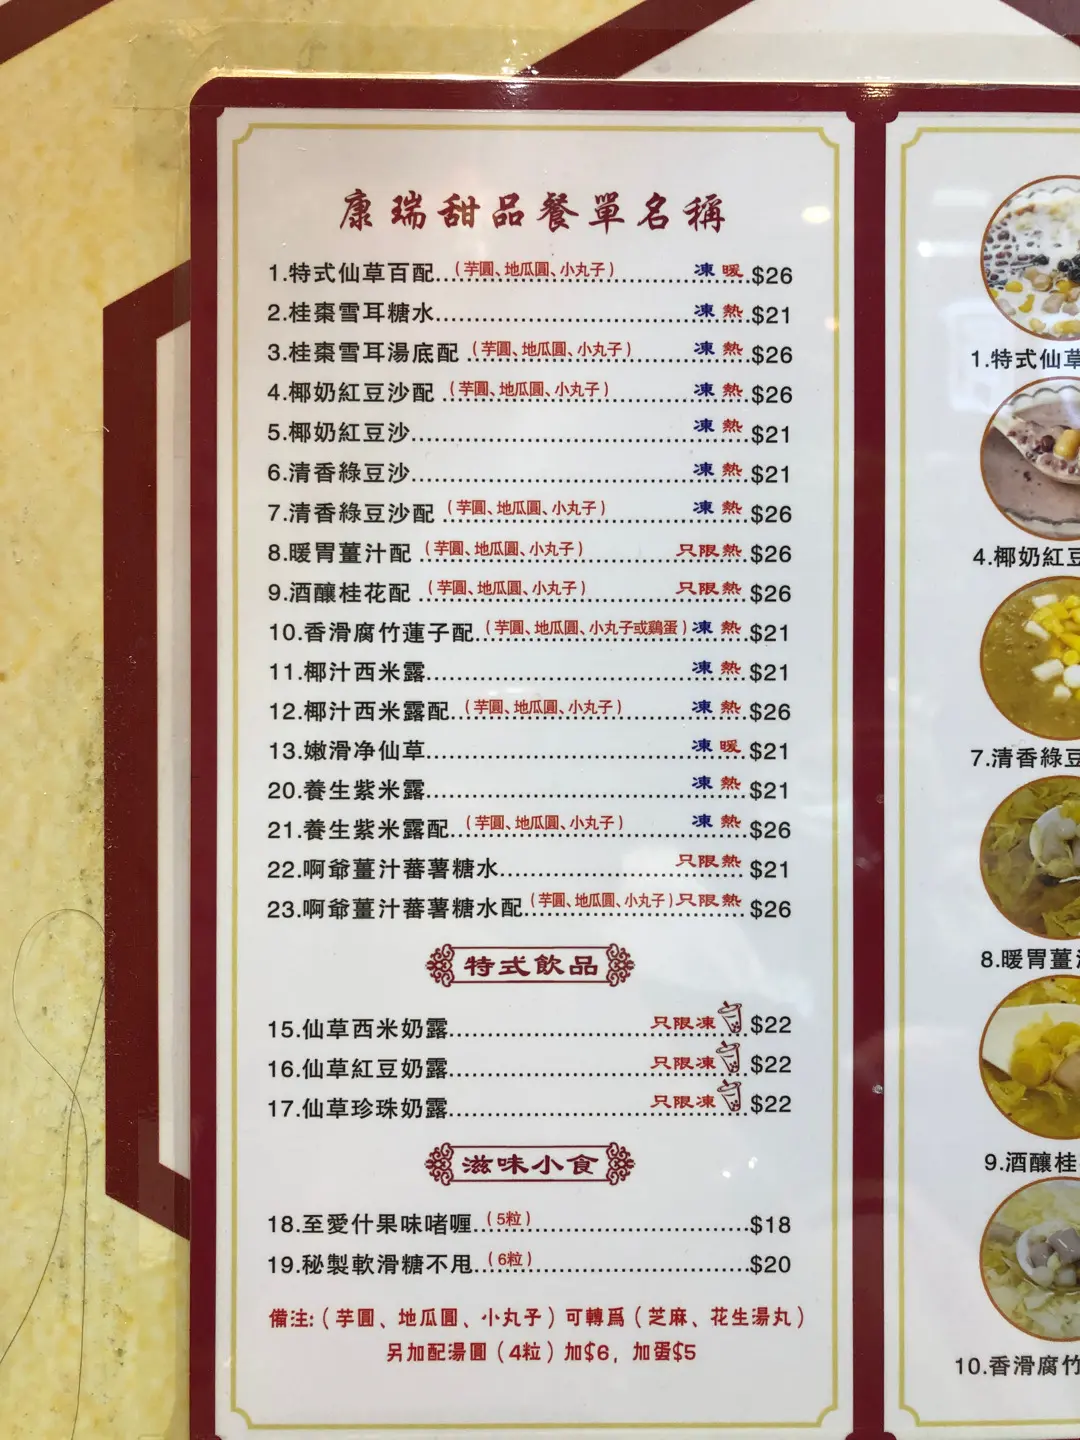 康瑞甜品餐單名稱
1.特式仙草百配...(芋圓、地瓜圓、小丸子) 凍 暖 $26
2.桂棗雪耳糖水... 凍 熱 $21
3.桂棗雪耳湯底配...(芋圓、地瓜圓、小丸子) 凍 熱 $26
4.椰奶紅豆沙配...(芋圓、地瓜圓、小丸子) 凍 熱 $26
5.椰奶紅豆沙... 凍 熱 $21
6.清香綠豆沙... 凍 熱 $21
7.清香綠豆沙配...(芋圓、地瓜圓、小丸子) 凍 熱 $26
8.暖胃薑汁配(芋圓、地瓜圓、小丸子)... 只限熱 $26
9.酒釀桂花配...(芋圓、地瓜圓、小丸子) 只限熱 $26
10.香滑腐竹蓮子配...(芋圓、地瓜圓、小丸子或鷄蛋) 凍 熱 $21
11.椰汁西米露... 凍 熱 $21
12.椰汁西米露配...(芋圓、地瓜圓、小丸子) 凍 熱 $26
13.嫩滑净仙草... 凍 暖 $21
20.養生紫米露... 凍 熱 $21
21.養生紫米露配...(芋圓、地瓜圓、小丸子) 凍 熱 $26
22.啊爺薑汁蕃薯糖水... 只限熱 $21
23.啊爺薑汁蕃薯糖水配...(芋圓、地瓜圓、小丸子) 只限熱 $26
特式飲品
15.仙草西米奶露... 只限凍 $22
16.仙草紅豆奶露... 只限凍 $22
17.仙草珍珠奶露... 只限凍 $22
滋味小食
18.至愛什果味啫喱...(5粒) $18
19.秘製軟滑糖不甩...(6粒) $20
備注:(芋圓、地瓜圓、小丸子)可轉爲(芝麻、花生湯丸)
另加配湯圓(4粒)加$6, 加蛋$5
1.特式仙草
4.椰奶紅豆
7.清香綠豆
8.暖胃薑汁
9.酒釀桂
10.香滑腐竹